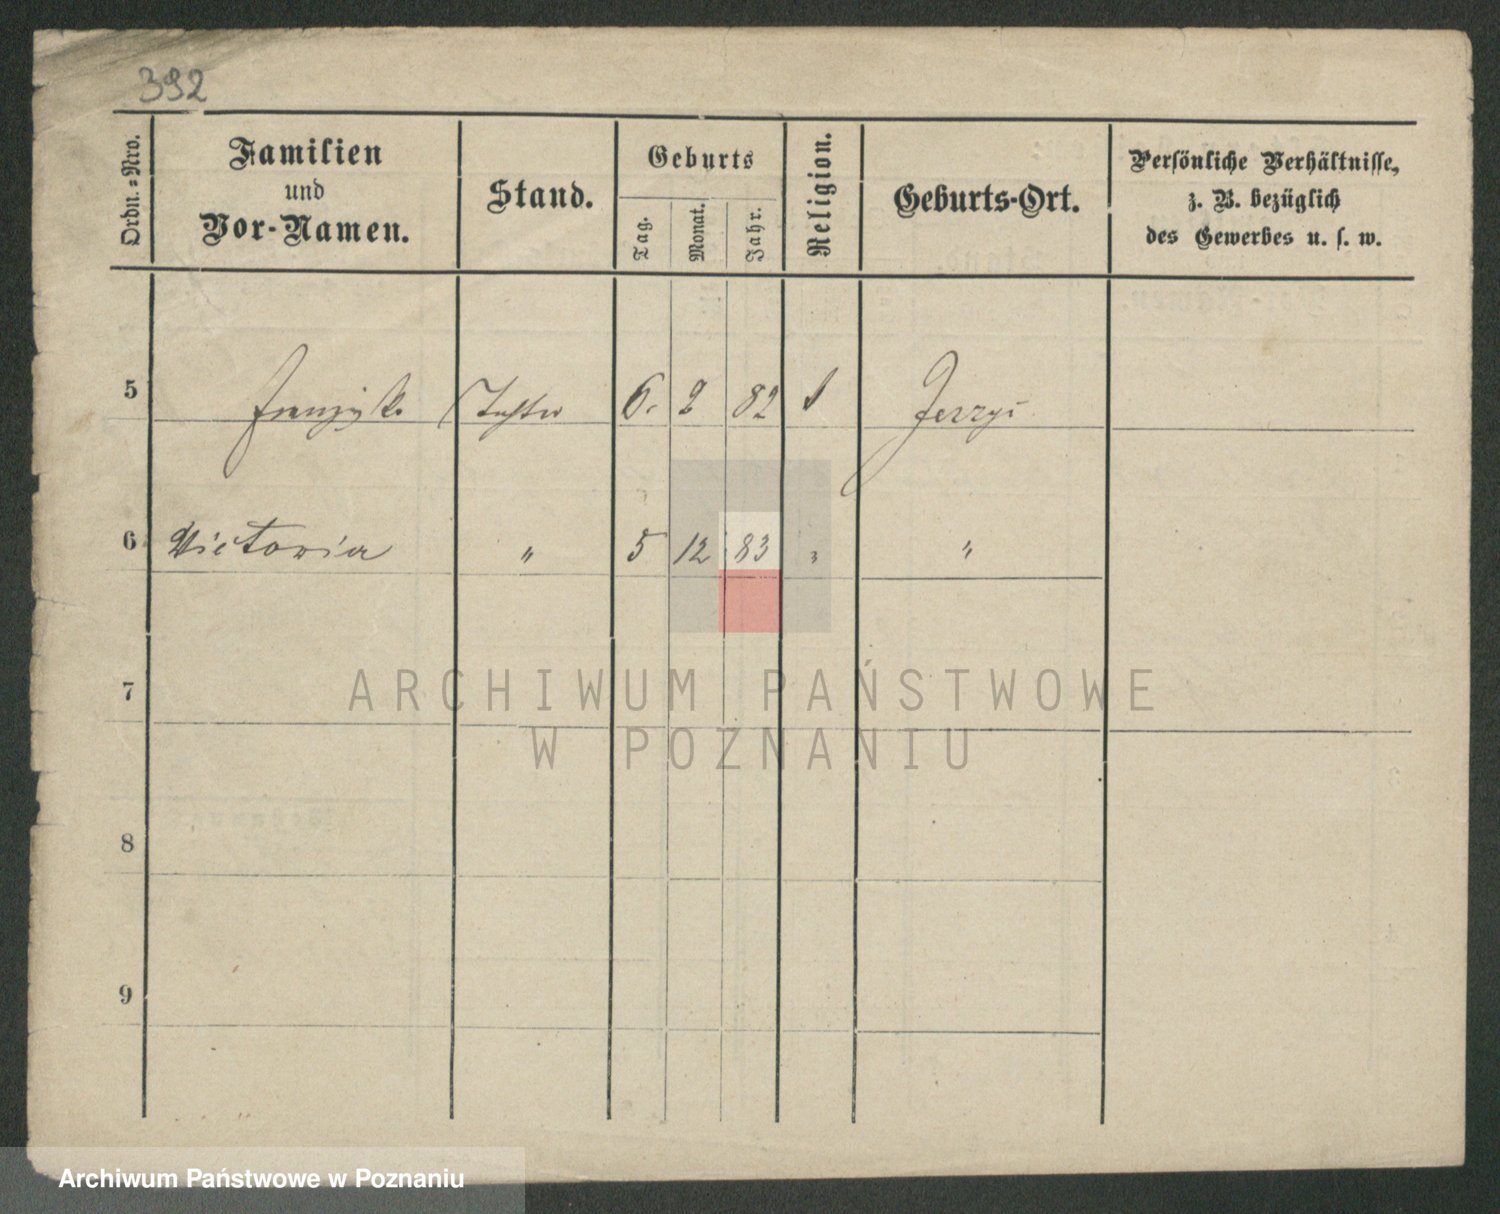 392
Ordn.=Nro.
Familien
und
Vor-Namen.
Stand.
Geburts
Tag.
Monat.
Jahr.
Religion.
Geburts-Ort.
Persönliche Verhältnisse,
z. B. bezüglich
des Gewerbes u. s. w.
5 6. 2 82 Jerzyc
6 Victoria " 5 12 83 " "
7
8
9
ARCHIWUM PAŃSTWOWE
W POZNANIU
Archiwum Państwowe w Poznaniu